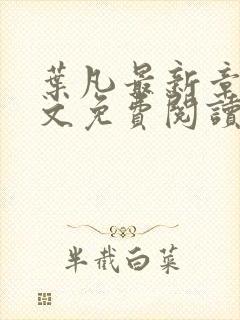 葉凡最新章
文免費閱讀
半截白菜